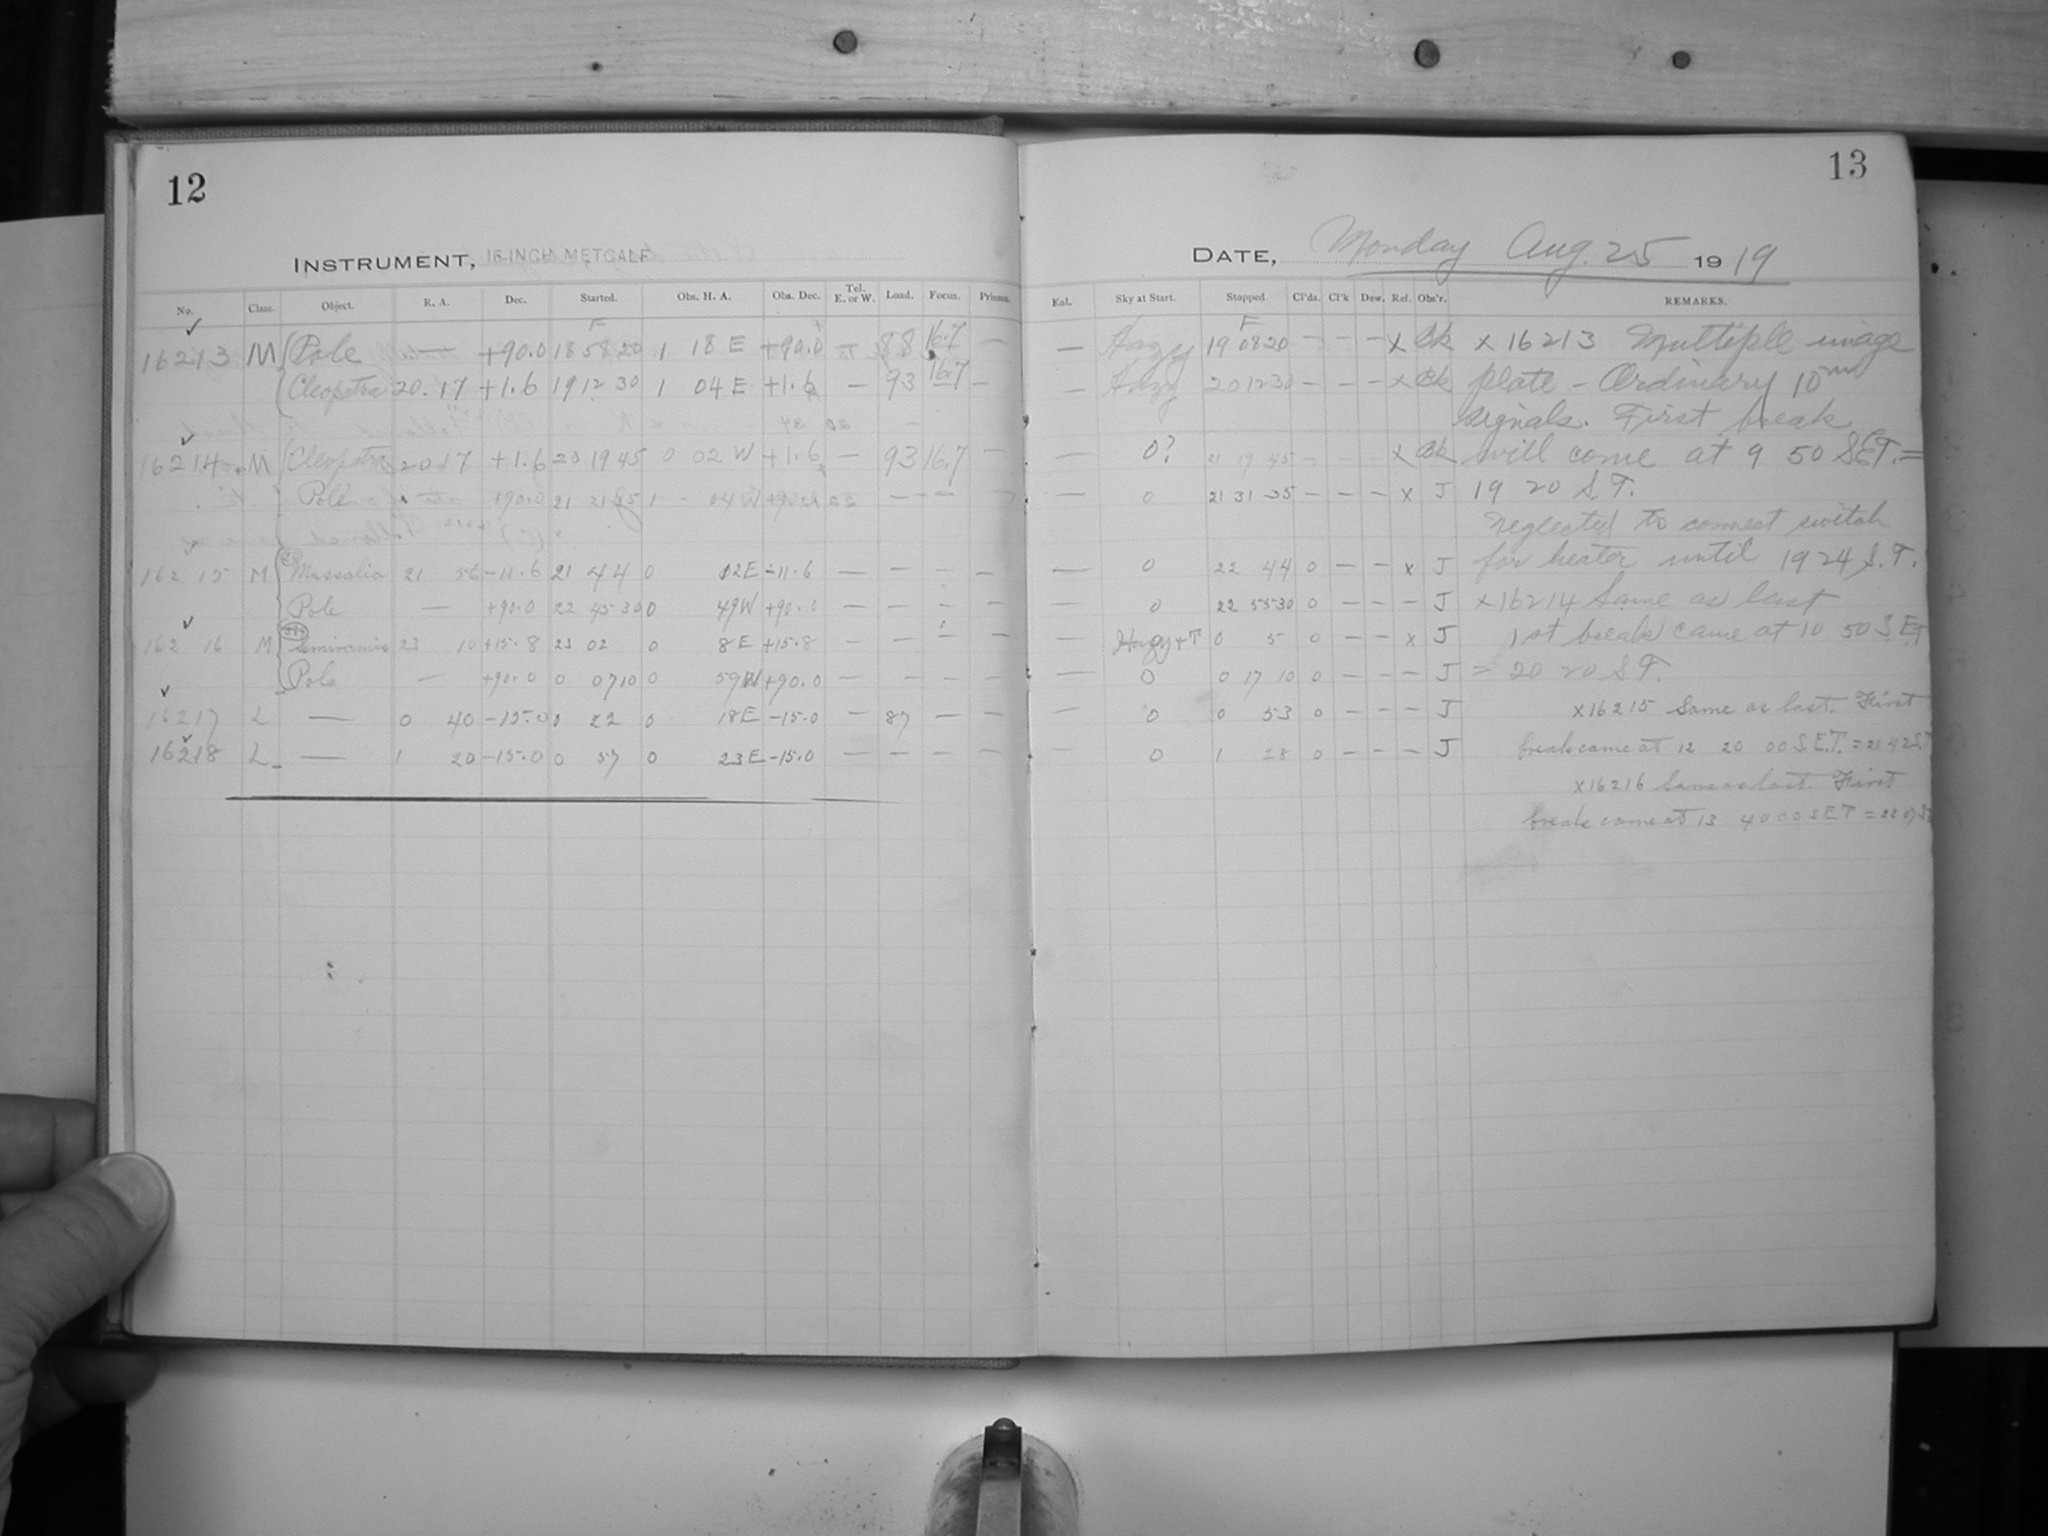 12
INSTRUMENT, 16-INCH METCALF
No. Class. Object. R. A. Dec. Started. Obs. H. A. Obs. Dec. Tel. E. or W. Load. Focus. Prisms.
16213 M Pole — +90.0 18 58 20 1 18 E +90.0 88 16.7 —
Cleopatra 20 . 17 +1.6 19 12 30 1 04 E +1.6 — 93 16.7 —
16214 M Cleopatra 20 17 +1.6 20 19 45 0 02 W +1.6 — 93 16.7 —
Pole +90.0 21 21 1 04 W — — —
16215 M Massalia 21 56 -11.6 21 44 0 12 E -11.6 — — — —
Pole — +90.0 22 45 30 0 49 W +90.0 — — — —
16216 M Semiramis 23 10 +15.8 23 02 0 8 E +15.8 — — — —
Pole — +90.0 0 07 10 0 59 W +90.0 — — — —
16217 L — 0 40 -15.0 0 22 0 18 E -15.0 — 87 — —
16218 L — 1 20 -15.0 0 57 0 23 E -15.0 — — — —
13
DATE, Monday Aug. 25 1919
Enl. Sky at Start. Stopped Cl'ds. Cl'k Dew. Ref. Obs'r. REMARKS.
— Hazy 19 08 20 — — — x Bk x 16213 Multiple image
— Hazy 20 12 30 — — — x Bk plate – Ordinary 10m
signals. First break
— 0? 21 19 45 — — — x Bk will come at 9 50 S.E.T. =
— 0 21 31 35 — — — x J 19 20 S.T.
neglected to connect switch
— 0 22 44 0 — — x J for heater until 19 24 S.T.
— 0 22 55 30 0 — — — J x16214 Same as last
— Hazy + T 0 5 0 — — x J 1st break came at 10 50 S.E.T
— 0 0 17 10 0 — — — J = 20 20 S.T.
— 0 0 53 0 — — — J x16215 Same as last. First
— 0 1 28 0 — — — J break came at 12 20 00 S.E.T. = 21 42 S.T
x16216 Same as last. First
break came at 13 40 00 S E T =